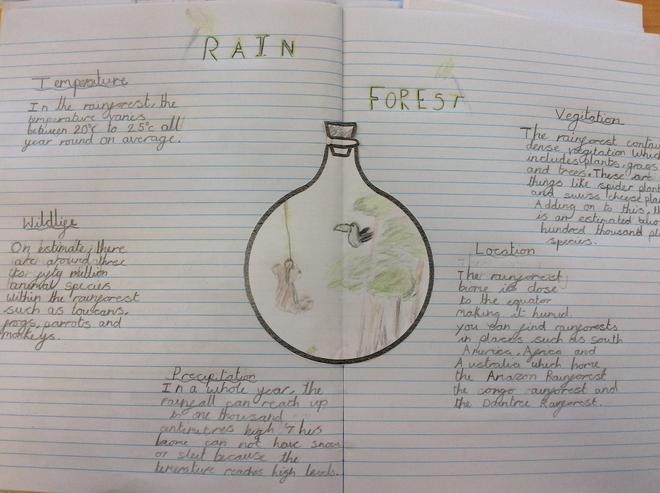 RAIN
FOREST
Temperature
In the rainforest, the
temperature varies
between 20°c to 25°c all
year round on average.
Wildlife
On estimate, there
are around three
to fifty million
animal species
within the rainforest
such as toucans,
frogs, parrots and
monkeys.
Precipitation
In a whole year, the
rainfall can reach up
to one thousand
centimetres high. This
biome can not have snow
or sleet because the
temerature reaches high levels.
Vegitation
The rainforest
dense vegitation which
includes plants, grass
and trees. These are
things like spider plant
and swiss cheese
Adding on to this,
is an estimated
hundred thousand
species.
Location
The rainforest
biome is close
to the equator
making it humid.
you can find rainforests
in places such as south
America, Africa and
Australia which home
the Amazon Rainforest
the congo rainforest and
the Daintree Rainforest.